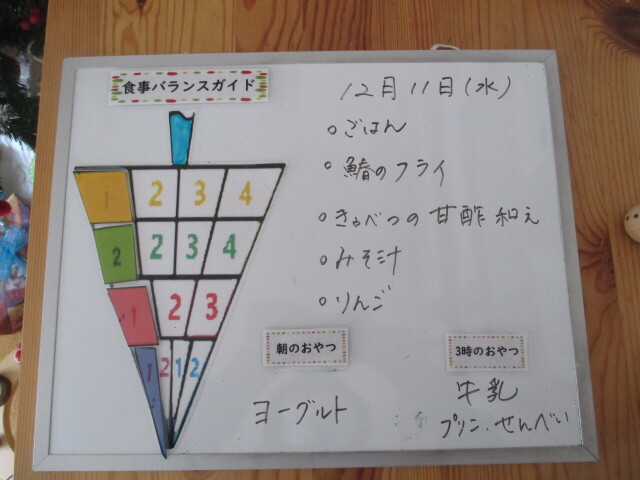 食事バランスガイド
12月11日(水)
○ごはん
○鰆のフライ
○きゃべつの甘酢和え
○みそ汁
○りんご
1 2 3 4
2 2 3 4
1 2 3
1 2 1 2
朝のおやつ
ヨーグルト
3時のおやつ
牛乳
プリン、せんべい